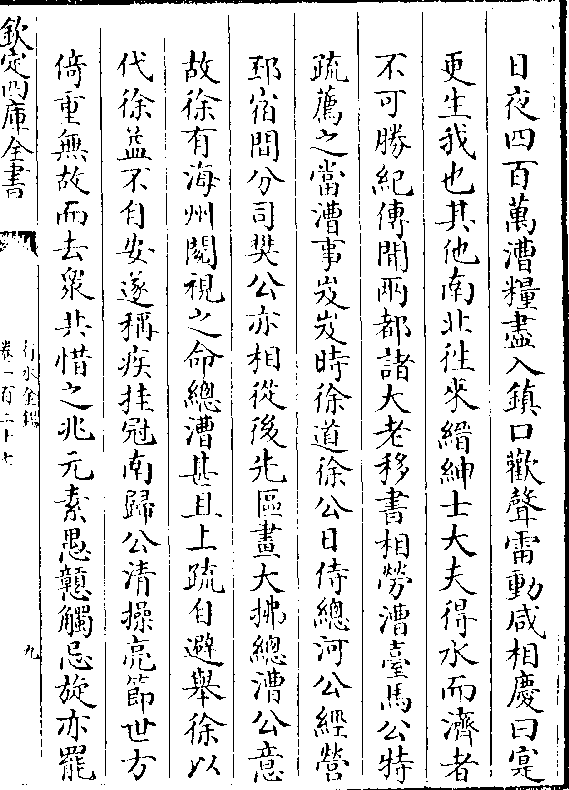 日夜四百萬漕糧盡入鎮口歡聲雷動咸相慶曰寔
更生我也其他南北徃來縉紳士大夫得水而濟者
不可勝紀傳聞兩都諸大老移書相勞漕臺馬公特
疏薦之當漕事岌岌時徐道徐公日侍總河公經營
邳宿間分司樊公亦相從後先區畫大拂總漕公意
故徐有海州閱視之命總漕甚且上疏自避舉徐以
代徐益不自安遂稱疾挂冠南歸公清操亮節世方
倚重無故而去衆共惜之兆元素愚戇觸忌旋亦罷
欽定四庫全書
行水金鑑
卷一百二十七
九